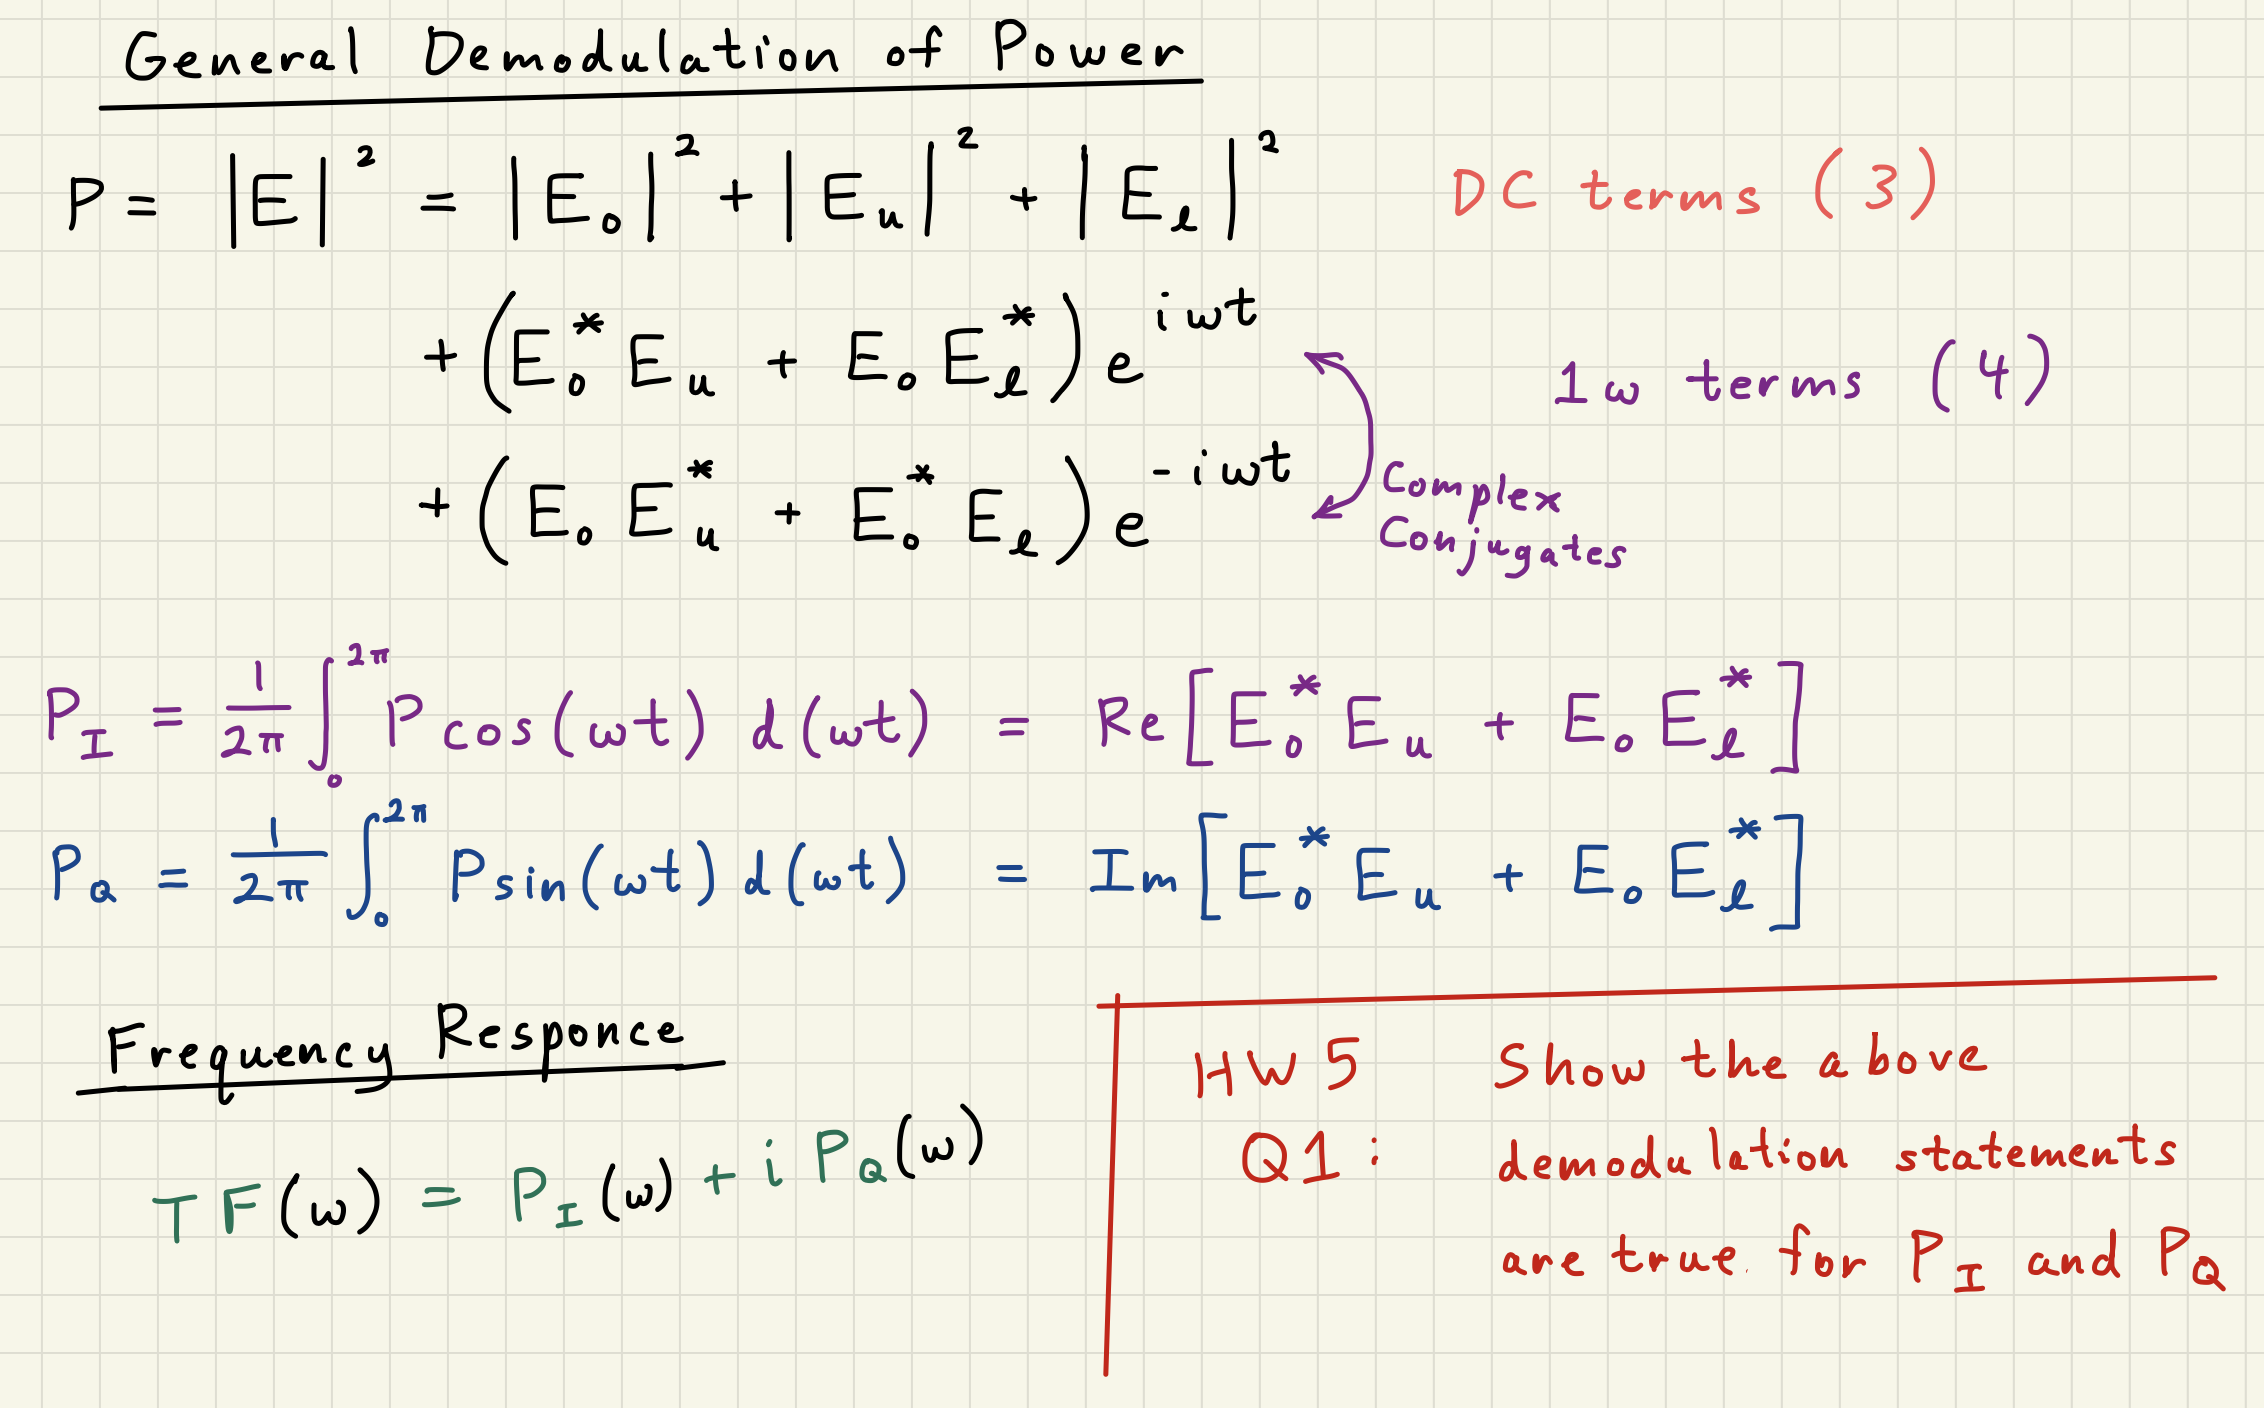 General Demodulation of Power
P = |E|² = |E₀|² + |E_u|² + |E_ℓ|² DC terms (3)
+ (E₀* E_u + E₀ E_ℓ*) e^{iωt} 1ω terms (4)
+ (E₀ E_u* + E₀* E_ℓ) e^{-iωt} Complex
Conjugates
P_I = 1/2π ∫₀^{2π} P cos(ωt) d(ωt) = Re[E₀* E_u + E₀ E_ℓ*]
P_Q = 1/2π ∫₀^{2π} P sin(ωt) d(ωt) = Im[E₀* E_u + E₀ E_ℓ*]
Frequency Responce
TF(ω) = P_I(ω) + i P_Q(ω)
HW5 Show the above
Q1: demodulation statements
are true for P_I and P_Q